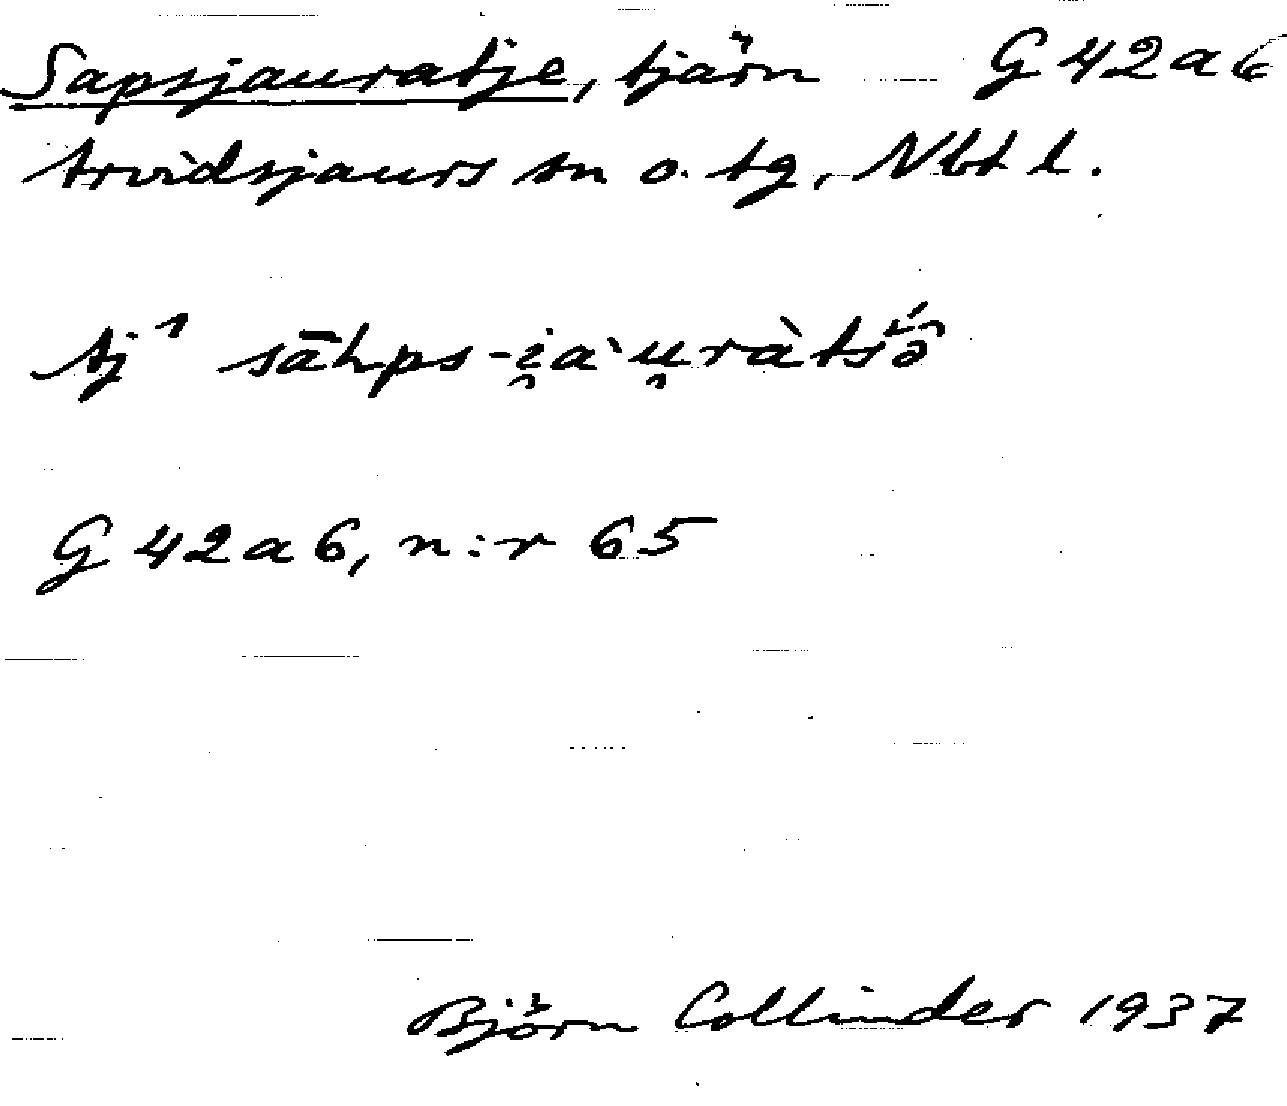 Sapsjauratje, tjärn G 42 a 6
Arvidsjaurs sn o. tg, Nbt l.
Aj 1 sāhps-i̯a`u̯ràtsə́̑
G 42 a 6, n:r 65
Björn Collinder 1937